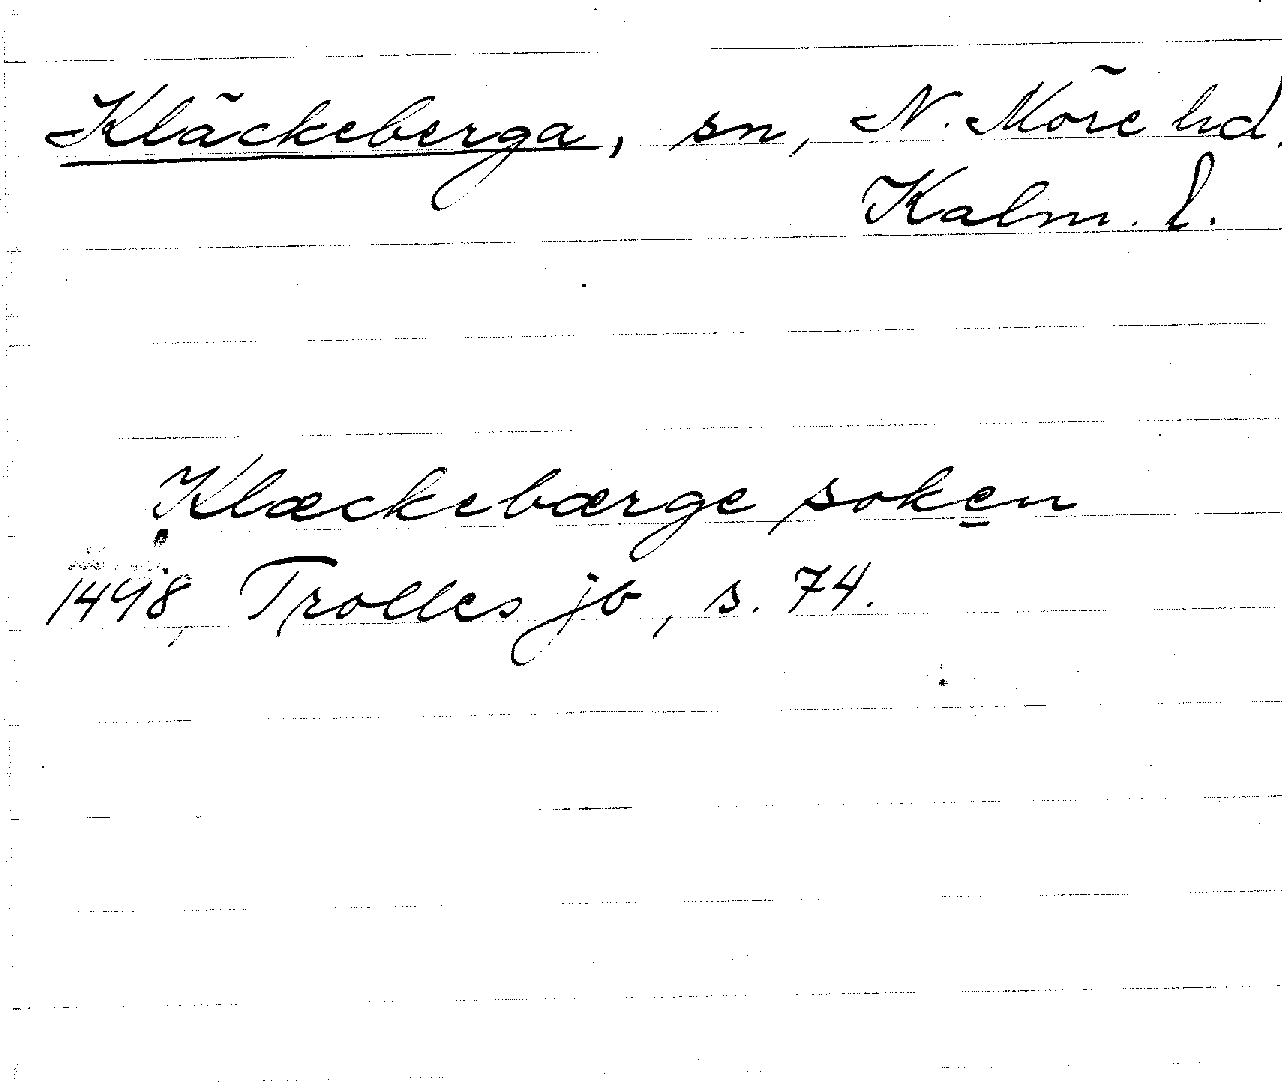 Kläckeberga, sn, N. Möre hd.
Kalm. l.
Klæckebærge soken
1498, Trolles jb, s. 74.